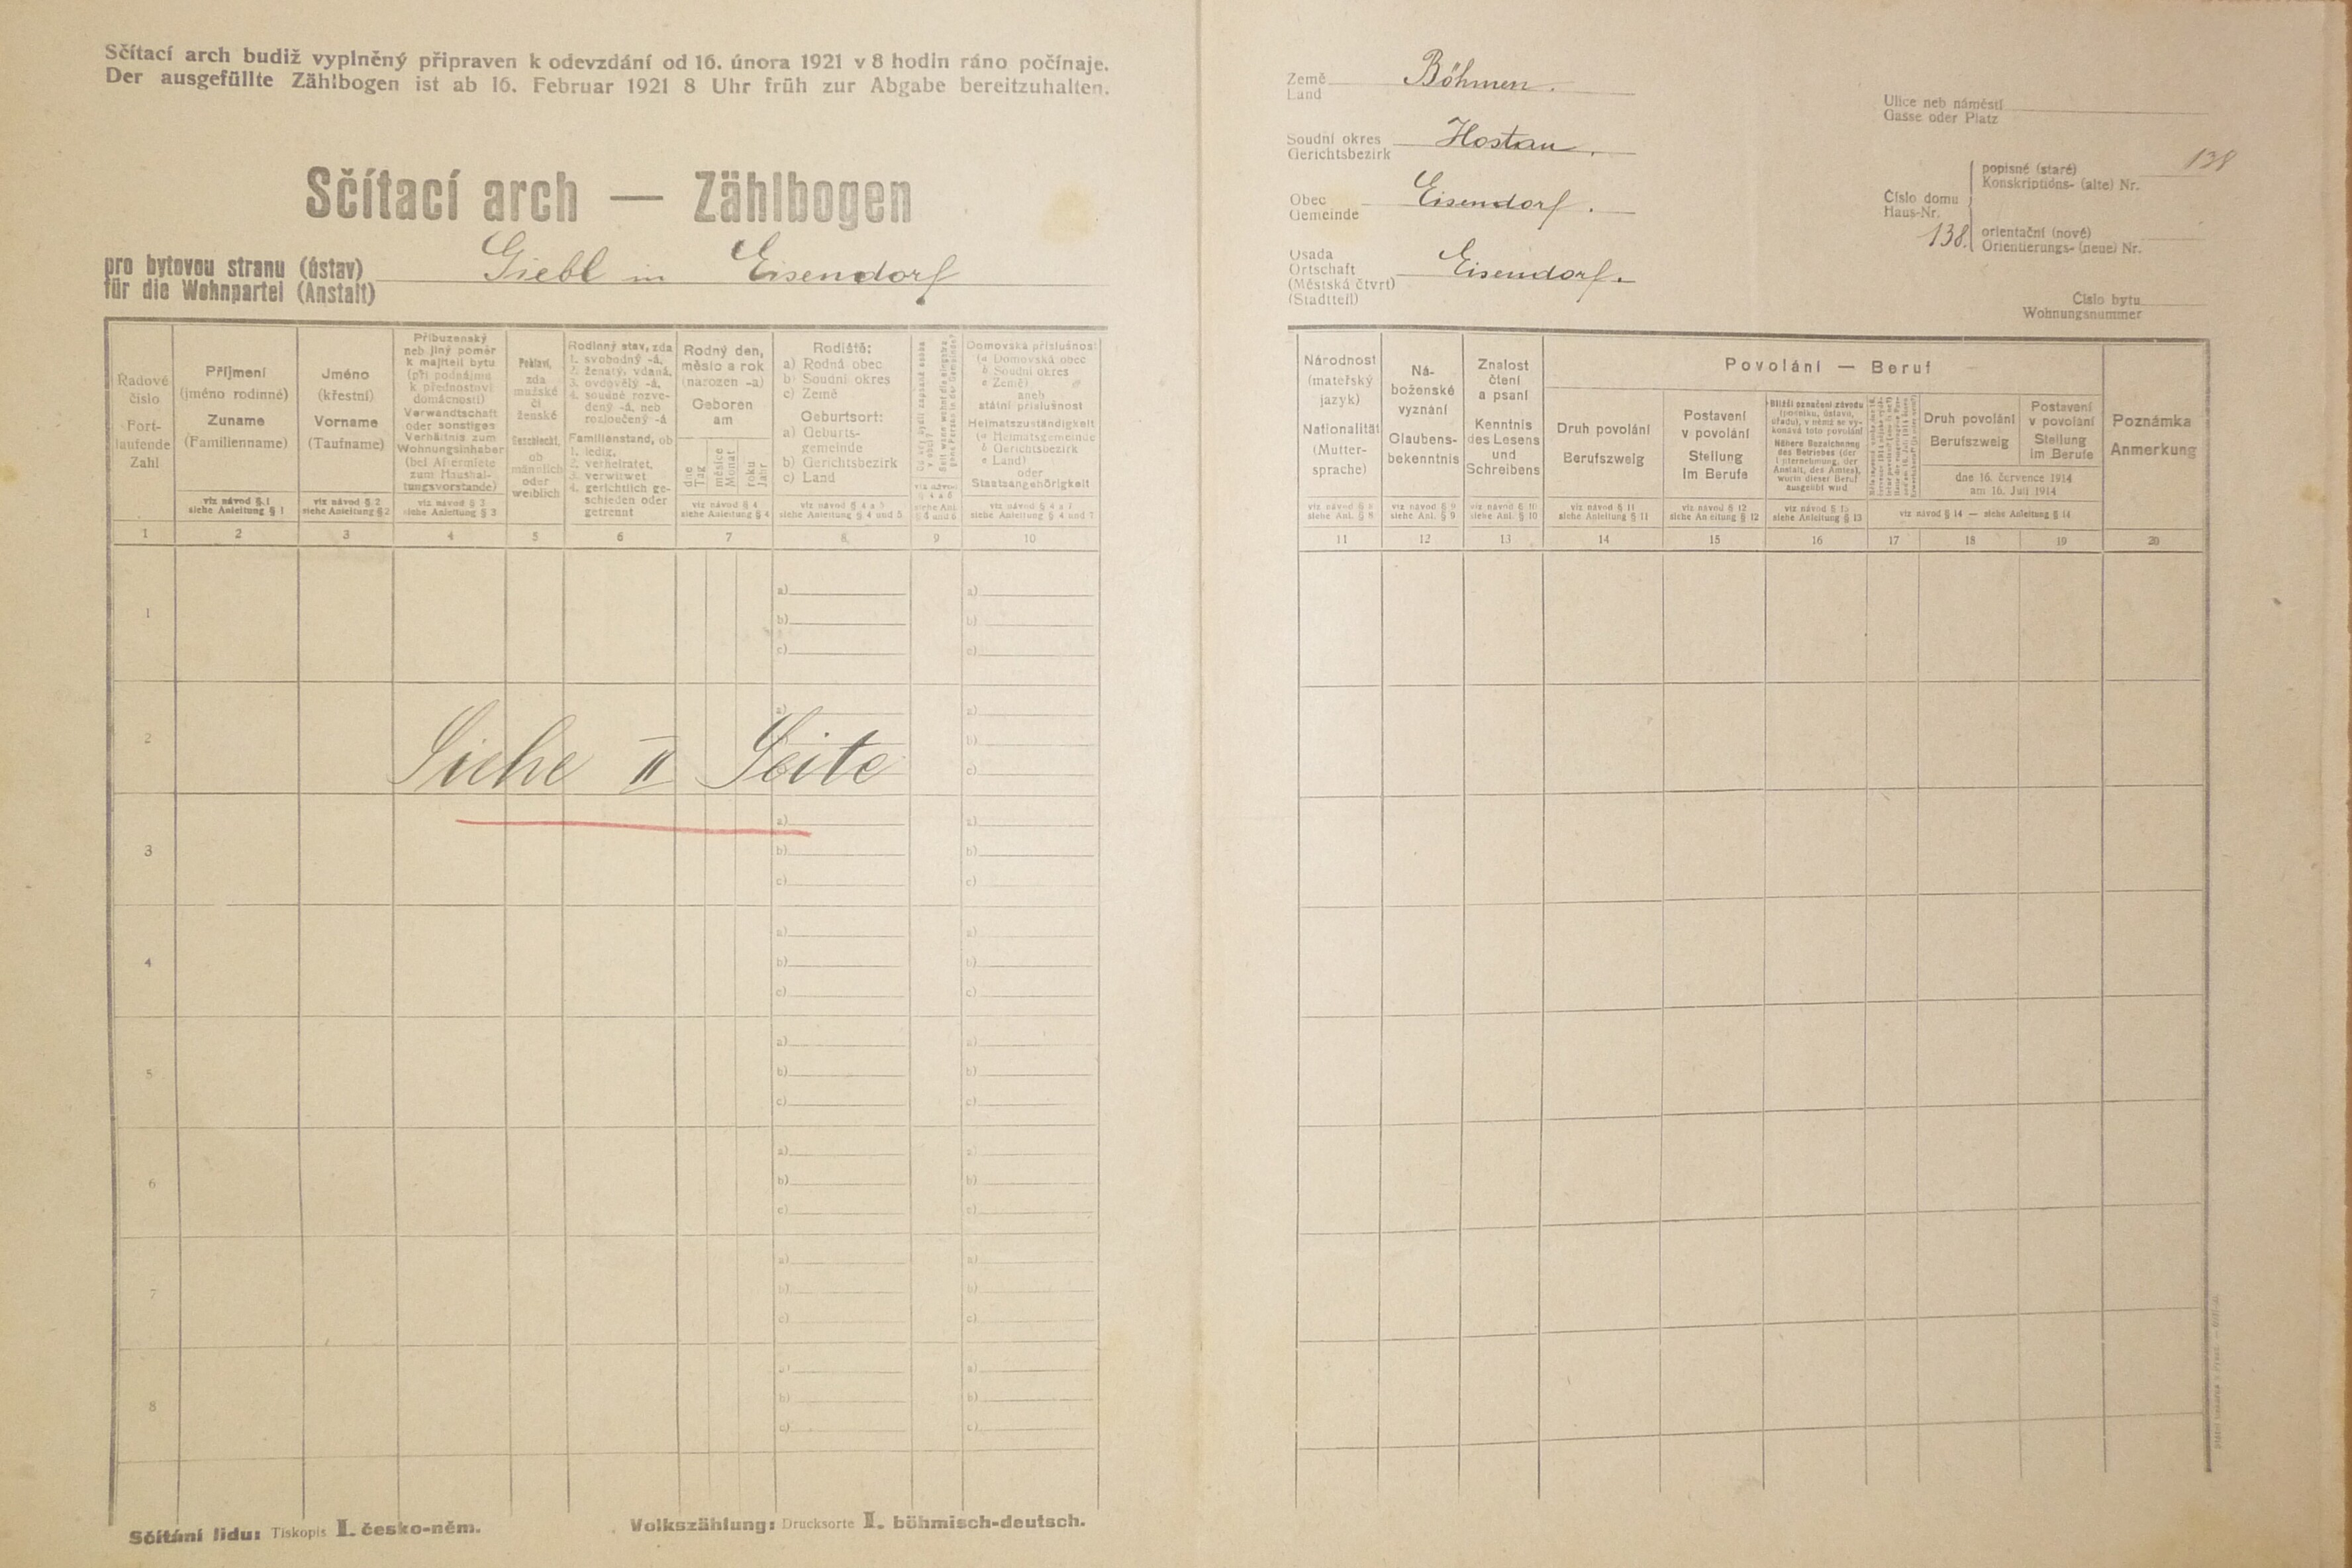 Sčítací arch budiž vyplněný připraven k odevzdání od 16. února 1921 v 8 hodin ráno počínaje.
Der ausgefüllte Zählbogen ist ab 16. Februar 1921 8 Uhr früh zur Abgabe bereitzuhalten.
Sčítací arch — Zählbogen
pro bytovou stranu (ústav)
für die Wohnpartei (Anstalt)
Giebl in Eisendorf
Země
Land
Böhmen.
Soudní okres
Gerichtsbezirk
Hostau.
Obec
Gemeinde
Eisendorf.
Osada
Ortschaft
(Městská čtvrt)
(Stadtteil)
Eisendorf.
Ulice neb náměstí
Gasse oder Platz
Číslo domu
Haus-Nr.
138.
popisné (staré)
Konskriptions- (alte) Nr.
138
orientační (nové)
Orientierungs- (neue) Nr.
Číslo bytu
Wohnungsnummer
Řadové
číslo
Fort-
laufende
Zahl
1
Příjmení
(jméno rodinné)
Zuname
(Familienname)
viz návod § 1
siehe Anleitung § 1
2
Jméno
(křestní)
Vorname
(Taufname)
viz návod § 2
siehe Anleitung § 2
3
Příbuzenský
neb jiný poměr
k majiteli bytu
(při podnájmu
k přednostovi
domácnosti)
Verwandtschaft
oder sonstiges
Verhältnis zum
Wohnungsinhaber
(bei Aftermiete
zum Haushal-
tungsvorstande)
viz návod § 3
siehe Anleitung § 3
4
Pohlaví,
zda
mužské
či
ženské
Geschlecht,
ob
männlich
oder
weiblich
5
Rodinný stav, zda
1. svobodný -á,
2. ženatý, vdaná,
3. ovdovělý -á,
4. soudně rozve-
dený -á, neb
rozloučený -á
Familienstand, ob
1. ledig,
2. verheiratet,
3. verwitwet
4. gerichtlich ge-
schieden oder
getrennt
6
Rodný den,
měsíc a rok
(narozen -a)
Geboren
am
dne
Tag
měsíce
Monat
roku
Jahr
viz návod § 4
siehe Anleitung § 4
7
Rodiště:
a) Rodná obec
b) Soudní okres
c) Země
Geburtsort:
a) Geburts-
gemeinde
b) Gerichtsbezirk
c) Land
viz návod § 4 a 5
siehe Anleitung § 4 und 5
8
9
Domovská příslušnost
(a Domovská obec
b Soudní okres
c Země)
aneb
státní příslušnost
Heimatszuständigkeit
(a Heimatsgemeinde
b Gerichtsbezirk
c Land)
oder
Staatsangehörigkeit
viz návod § 4 a 7
siehe Anleitung § 4 und 7
10
Národnost
(mateřský
jazyk)
Nationalität
(Mutter-
sprache)
viz návod § 8
siehe Anl. § 8
11
Ná-
boženské
vyznání
Glaubens-
bekenntnis
viz návod § 9
siehe Anl. § 9
12
Znalost
čtení
a psaní
Kenntnis
des Lesens
und
Schreibens
viz návod § 10
siehe Anl. § 10
13
Povolání — Beruf
Druh povolání
Berufszweig
viz návod § 11
siehe Anleitung § 11
14
Postavení
v povolání
Stellung
im Berufe
viz návod § 12
siehe Anleitung § 12
15
Bližší označení závodu
(podniku, ústavu,
úřadu), v němž se vy-
konává toto povolání
Nähere Bezeichnung
des Betriebes (der
Unternehmung, der
Anstalt, des Amtes),
worin dieser Beruf
ausgeübt wird
viz návod § 13
siehe Anleitung § 13
16
17
Druh povolání
Berufszweig
18
Postavení
v povolání
Stellung
im Berufe
19
dne 16. července 1914
am 16. Juli 1914
viz návod § 14 — siehe Anleitung § 14
Poznámka
Anmerkung
20
1
a)
b)
c)
a)
b)
c)
2
a)
b)
c)
a)
b)
c)
Siehe II Seite
3
a)
b)
c)
a)
b)
c)
4
a)
b)
c)
a)
b)
c)
5
a)
b)
c)
a)
b)
c)
6
a)
b)
c)
a)
b)
c)
7
a)
b)
c)
a)
b)
c)
8
a)
b)
c)
a)
b)
c)
Sčítání lidu: Tiskopis II. česko-něm.
Volkszählung: Drucksorte II. böhmisch-deutsch.